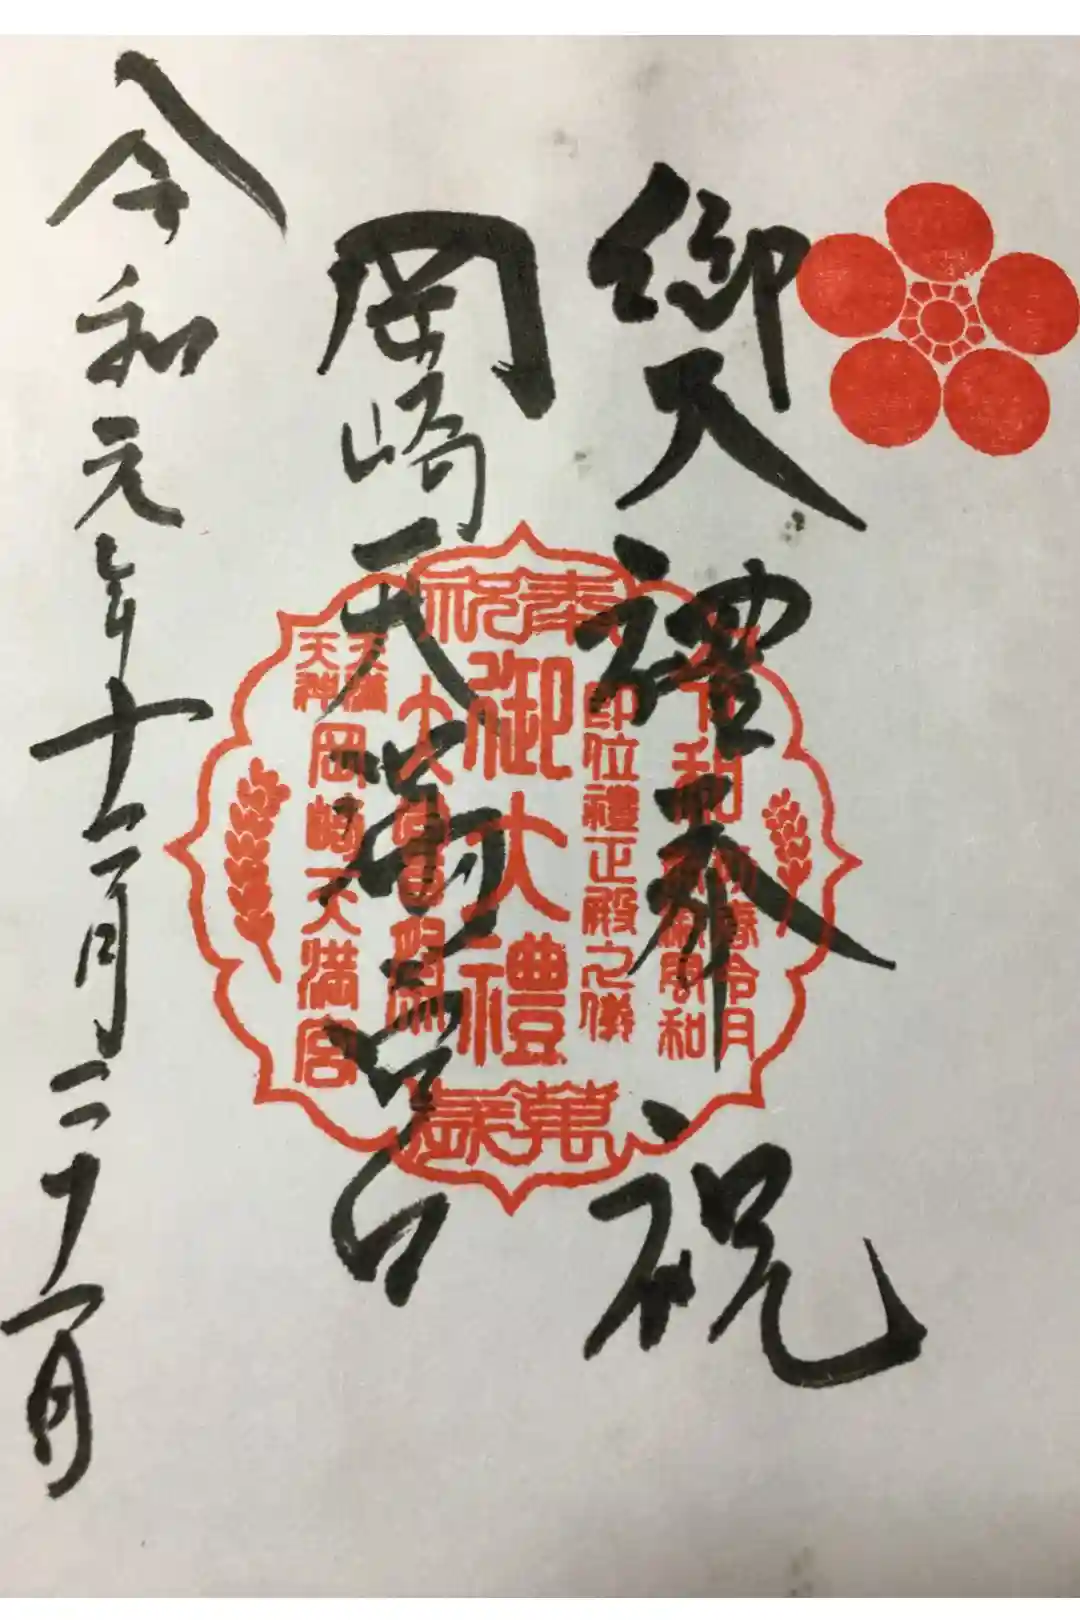 御大禮奉祝
岡崎天満宮
令和元年十一月二十一日
奉祝
令和
初春令月
氣淑風和
即位禮正殿之儀
御大禮
大嘗祭
天満
天神
岡崎天満宮
萬歳